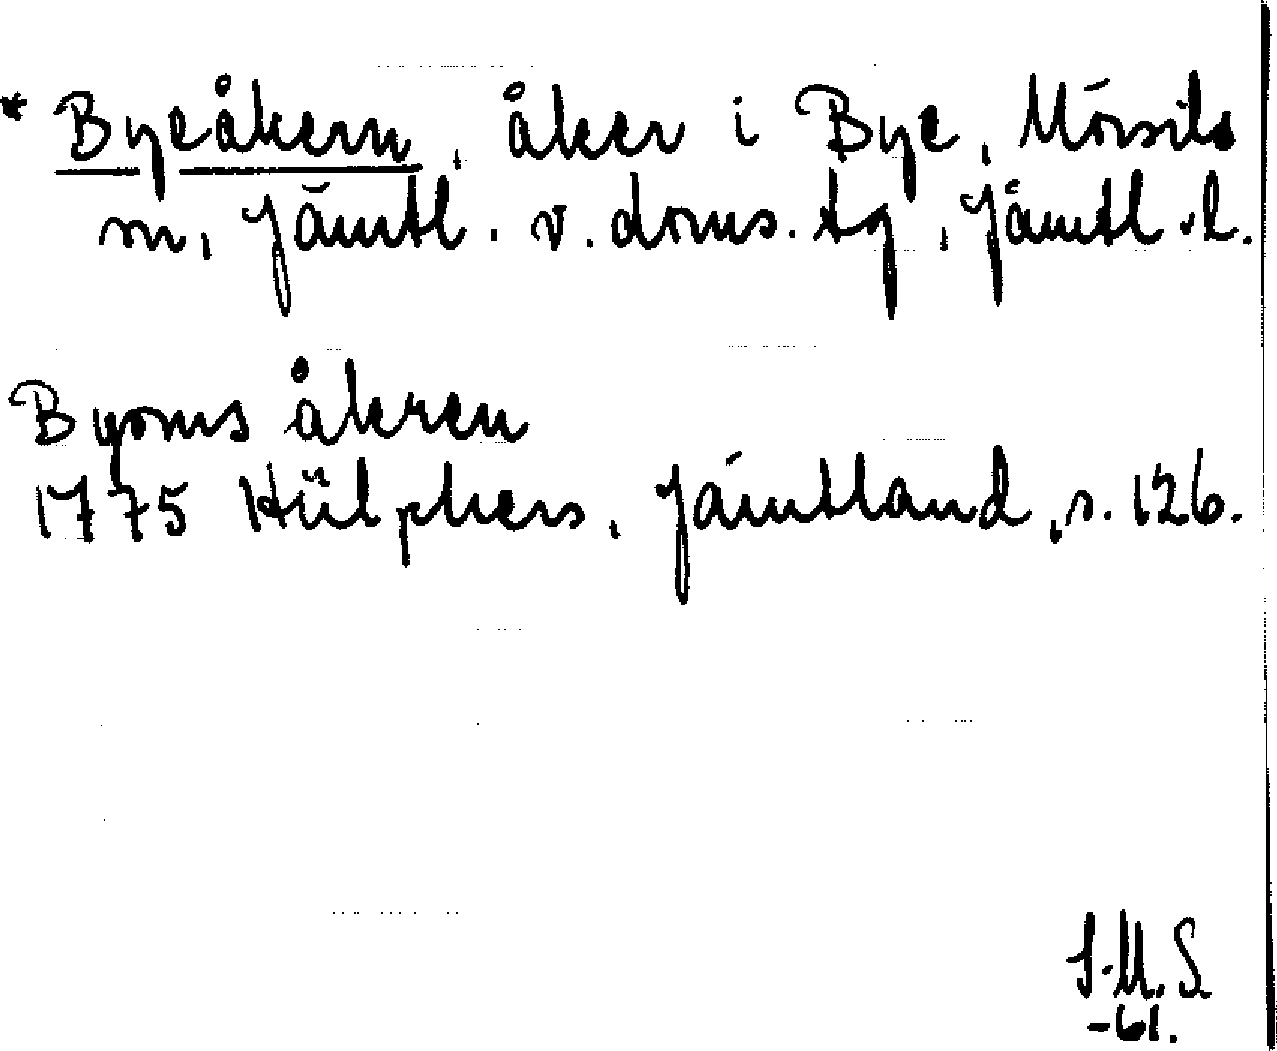 * Byeåkern, åker i Bye, Mörsils
sn, Jämtl. v. doms. tg, Jämtl. l.
Byoms åkren
1775 Hülphers, Jämtland, s. 126.
S.M.S.
-61.